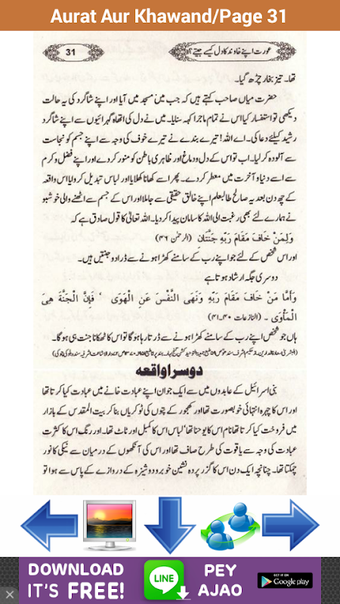 Aurat Aur Khawand/Page 31
31
عورت اپنے خاوند کا دل کیسے جیتے؟
تھا۔ تیز بخار چڑھ گیا۔
حضرت میاں صاحب کہتے ہیں کہ جب میں مسجد میں آیا اور اپنے شاگرد کی یہ حالت
دیکھی تو استفسار کیا اس نے تمام ماجرا کہہ سنایا۔ میں نے دل کی اتھاہ گہرائیوں سے اپنے شاگرد
رشید کیلئے دعا کی۔ اے اللہ! تیرے بندے نے تیرے خوف کی وجہ سے اپنے جسم کو نجاست
سے آلودہ کر لیا۔ اب تو اس کے دل و دماغ اور ظاہری باطن کو منور کر دے اور اپنے فضل و کرم
سے اسے دنیا و آخرت میں معطر کر دے۔ پھر اسے کھانا کھلایا اور لباس تبدیل کرایا اس واقعہ
کے چھ دن بعد یہ صالح طالبعلم اپنے خالق حقیقی سے جا ملا اور اس کے جسم سے اٹھنے والی خوشبو
نے ہمارے لئے بھی رغبت الی اللہ کا سامان پیدا کر دیا۔ اللہ تعالیٰ کا قول صادق ہے کہ
وَلِمَنْ خَافَ مَقَامَ رَبِّهِ جَنَّتَانِ (الرحمٰن ۴۶)
اور اس شخص کے لئے جو اپنے رب کے سامنے کھڑا ہونے سے ڈرا دو جنتیں ہیں۔
دوسری جگہ ارشاد ہوتا ہے
وَأَمَّا مَنْ خَافَ مَقَامَ رَبِّهِ وَنَهَى النَّفْسَ عَنِ الْهَوَى ۙ فَإِنَّ الْجَنَّةَ هِيَ
الْمَأْوَى ۔ (النازعات ۴۰،۴۱)
ہاں جو شخص اپنے رب کے سامنے کھڑا ہونے سے ڈرتا رہا ہوگا تو اس کا ٹھکانا جنت ہی ہوگا۔
دوسرا واقعہ
بنی اسرائیل کے عابدوں میں سے ایک جوان اپنے عبادت خانے میں عبادت کیا کرتا تھا
اور اس کا چہرہ انتہائی خوبصورت تھا اور کھجور کے پتوں کی ٹوکریاں بنا کر بیت المقدس کے بازار
میں فروخت کیا کرتا تھا نام اس کا یوحنا تھا لباس اس کا کمبل اور ٹاٹ تھا۔ اور رنگ اس کا کثرت
عبادت کی وجہ سے یاقوت کی طرح صاف تھا اور اس کی آنکھوں کے درمیان سے نیکی کا نور
چمکتا تھا۔ چنانچہ ایک دن اس کا گزر پردہ نشین خوبرو دوشیزہ کے دروازے کے پاس سے ہوا تو
DOWNLOAD
IT'S FREE!
LINE
PEY
AJAO
GET IT ON
Google play